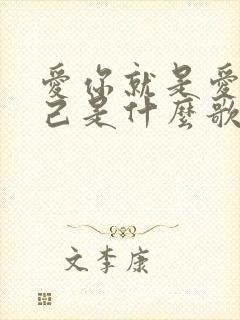 愛你就是愛
己是什麼歌
文李康